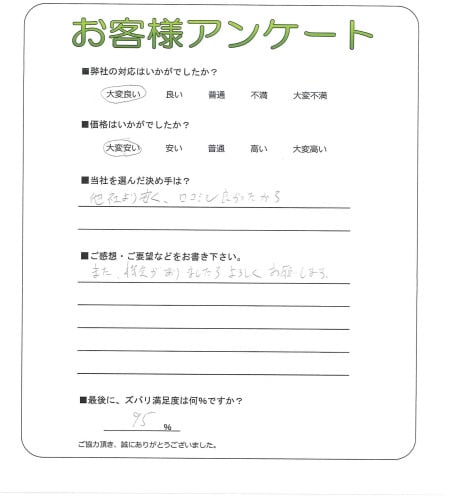 お客様アンケート
■弊社の対応はいかがでしたか？
大変良い 良い 普通 不満 大変不満
■価格はいかがでしたか？
大変安い 安い 普通 高い 大変高い
■当社を選んだ決め手は？
他社より安く、口コミも良かったから
■ご感想・ご要望などをお書き下さい。
また、機会がありましたらよろしくお願いします。
■最後に、ズバリ満足度は何%ですか？
95 %
ご協力頂き、誠にありがとうございました。